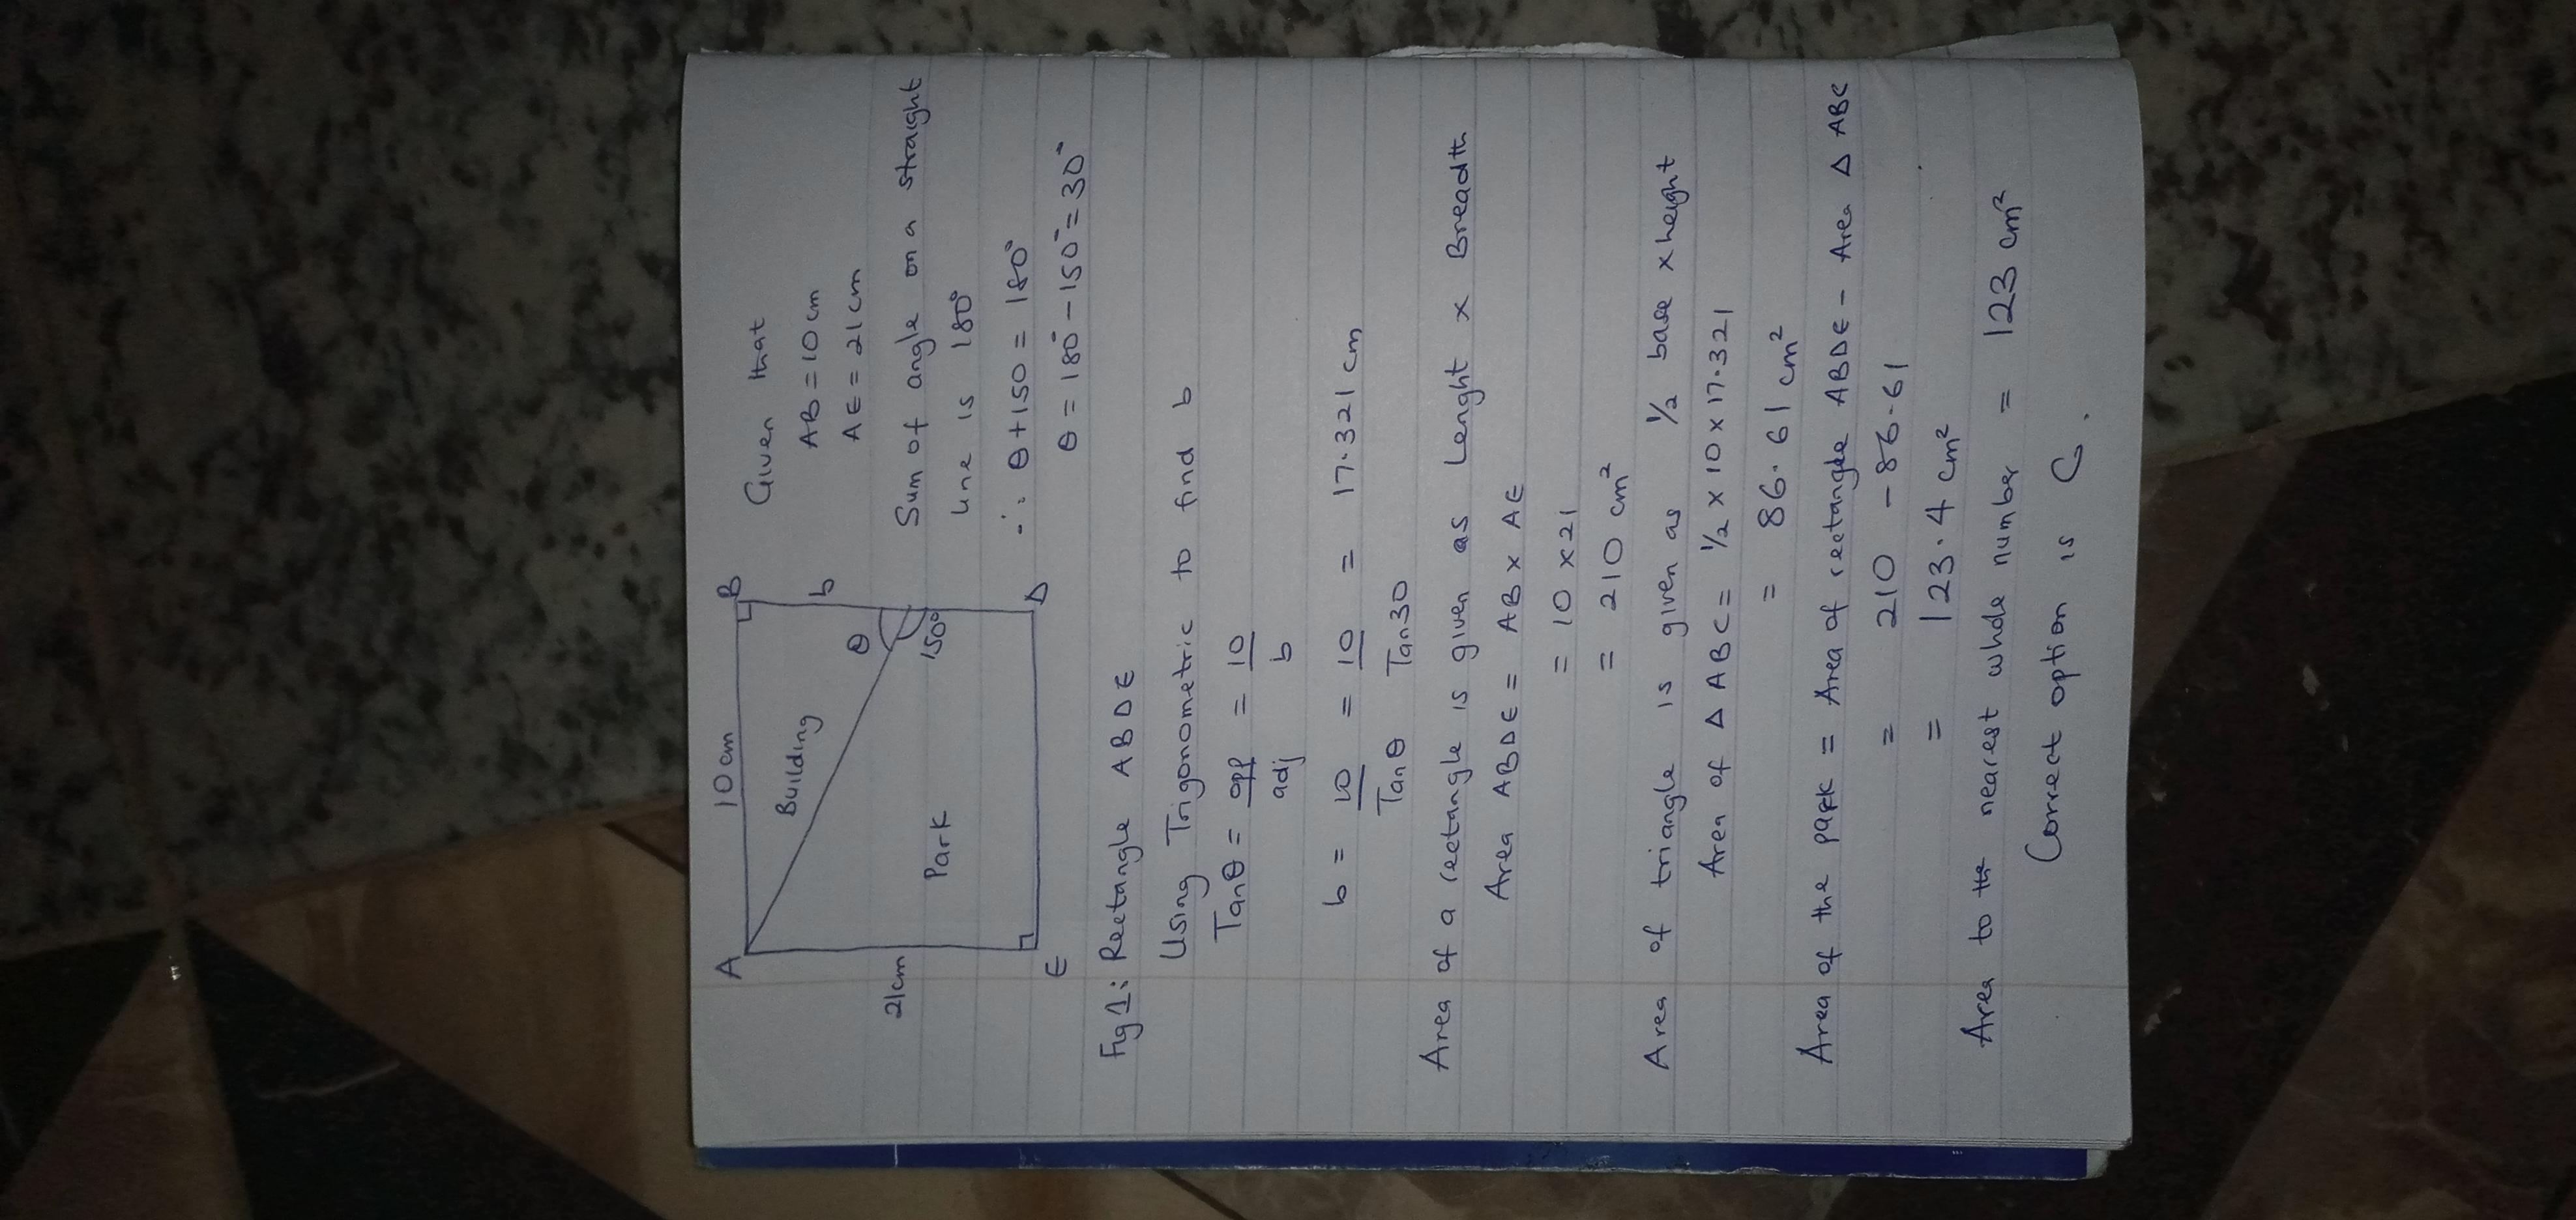 A 10cm B
Given that
AB = 10cm
AE = 21cm
Building
b
21cm
θ
Sum of angle on a straight
line is 180°
150°
Park
∴ θ + 150 = 180°
E D
θ = 180° - 150° = 30°
Fig 1: Rectangle ABDE
Using Trigonometric to find b
Tanθ = opp = 10
adj b
b = 10 = 10 = 17.321 cm
Tanθ Tan30
Area of a rectangle is given as Lenght x Breadth
Area ABDE = AB x AE
= 10 x 21
= 210 cm²
Area of triangle is given as ½ base x height
Area of Δ ABC = ½ x 10 x 17.321
= 86.61 cm²
Area of the park = Area of rectangle ABDE - Area Δ ABC
= 210 - 86.61
= 123.4 cm²
Area to the nearest whole number = 123 cm²
Correct option is C.